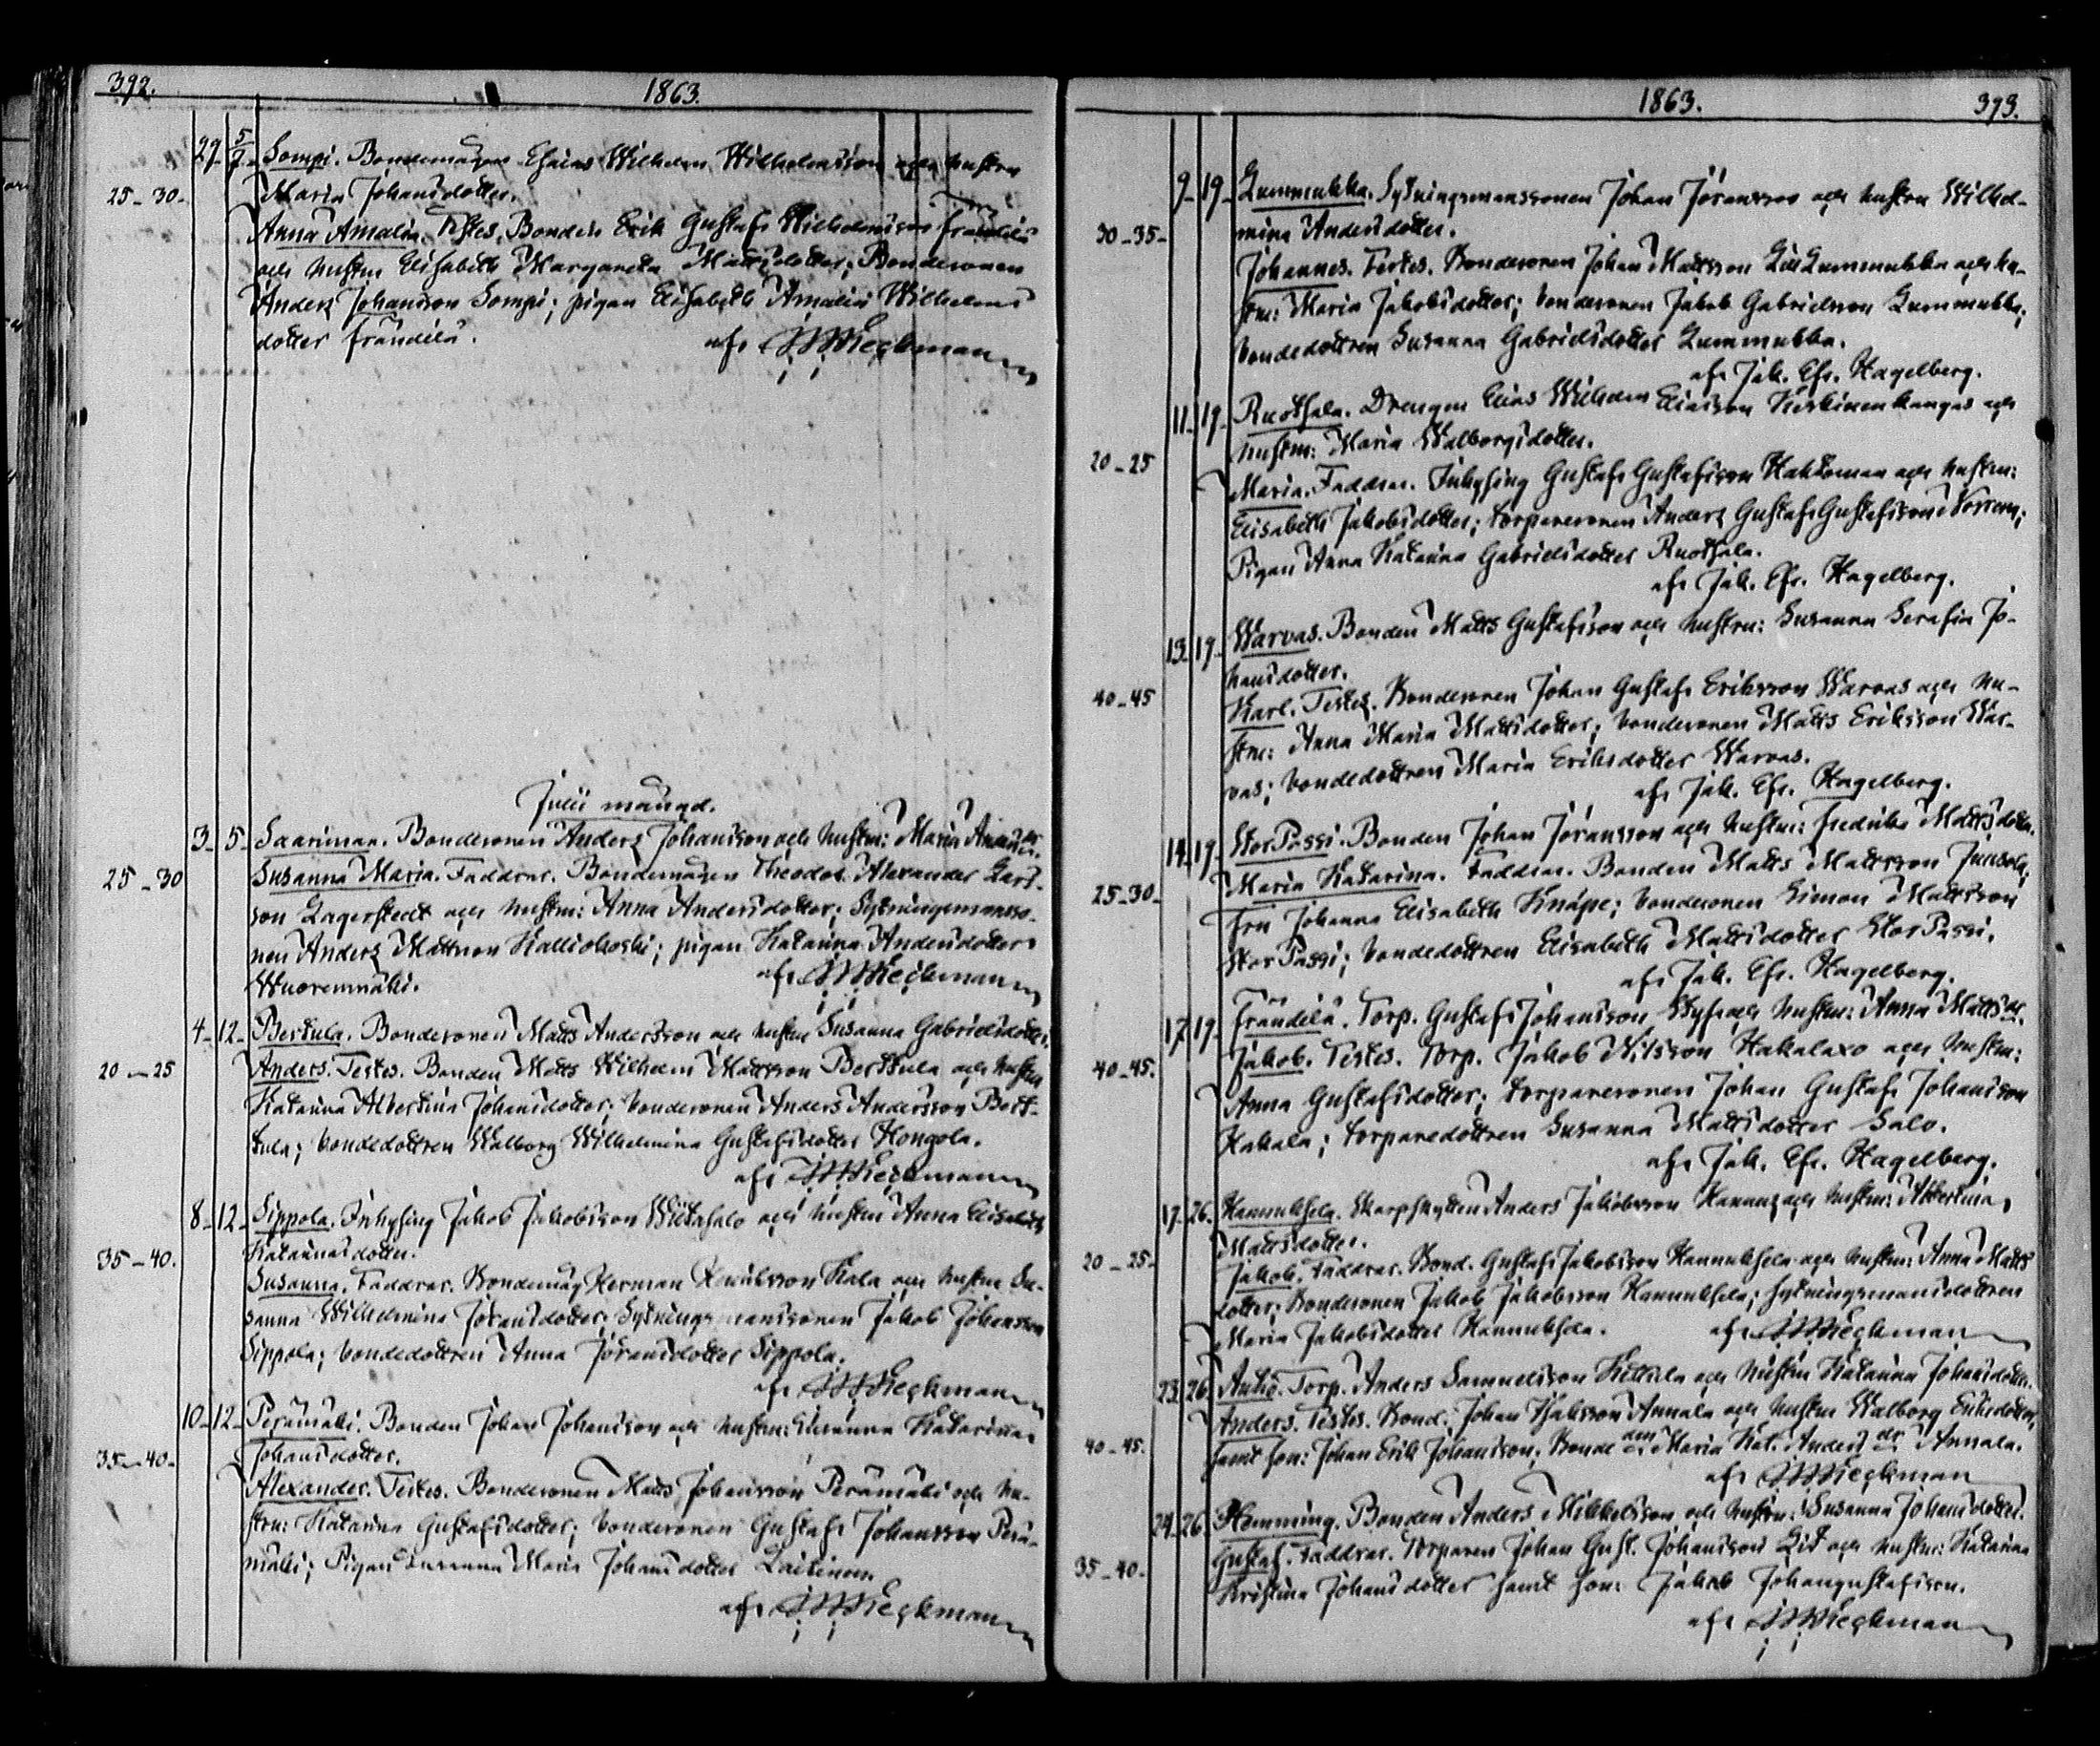 392. 1863.
29. 5/7. Sompi. Bondemågen Esaias Wilhelm Wilhelmsson och hustru
25-30. Maria Johansdotter.
Anna Amalia. Testes. Bonden Erik Gustaf Wilhelmsson Frändilä
och hustru Elisabeth Margareta Mattsdotter; Bondesonen
Anders Johansson Sompi; pigan Elisabeth Amalia Wilhelms
dotter Frändilä.
af Wegkman
Julii månad.
3. 5. Saariman. Bondesonen Anders Johansson och hustru: Maria Anders dr.
25-30 Susanna Maria. Faddrar. Bondemågen Theodor Alexander Carls-
son Lagerstedt och hustru: Anna Andersdotter; Sytningsmansso-
nen Anders Mattsson Kalliokoski; pigan Katarina Andersdotter
Wuorenmäki. af Wegkman
4. 12. Bertula. Bondesonen Matts Andersson och hustru Susanna Gabrielsdotter.
20-25 Anders. Testes. Bonden Matts Wilhelm Mattsson Bertula och hustru
Katarina Albertina Johansdotter; bondesonen Anders Andersson Bert-
tula; bondedottren Walborg Wilhelmina Gustafsdotter Hongola.
af Wegkman
8. 12. Sippola. Inhysing Jakob Jakobsson Wiitasalo och hustru Anna Elisabeth
35-40. Katarinasdotter.
Susanna. Faddrar. Bondemåg Herman Kala och hustru Su-
sanna Wilhelmina Jöransdotter; Sytningsmanssonen Jakob Johansson
Sippola; bondedottren Anna Jöransdotter Sippola.
af Wegkman
10. 12. Perämäki. Bonden Johan Johansson och hustru: Susanna Katarina
35-40. Johansdotter.
Alexander. Testes. Bondesonen Matts Johansson Perämäki och hu-
stru: Katarina Gustafsdotter; bondesonen Gustaf Johansson Perä-
mäki; Pigan Susanna Maria Johansdotter Laitinen.
af Wegkman
1863. 393.
9. 19. Lummukka. Sytningsmanssonen Johan Jöransson och hustru Wilhel-
30-35. mina Andersdotter.
Johannes. Testes. Bondesonen Johan Mattsson Lill Lummukka och hu-
stru: Maria Jakobsdotter; bondesonen Jakob Gabrielsson Lummukka;
bondedottren Susanna Gabrielsdotter Lummukka.
af Jak. Efr. Hagelberg.
11. 19. Ruotsala. Drengen Elias Wilhelm Eliasson Keskinenkangas och
20-25 hustru: Maria Walborgsdotter.
Maria. Faddrar. Inhysing Gustaf Gustafsson Hahtoman och hustru:
Elisabeth Jakobsdotter; torparesonen Anders Gustaf Gustafsson
Pigan Anna Katarina Gabrielsdotter Ruotsala.
af Jak. Efr. Hagelberg.
13. 19. Warvas. Bonden Matts Gustafsson och hustru: Susanna Serafia Jo-
hansdotter.
40-45 Karl. Testes. Bondesonen Johan Gustaf Eriksson Warvas och hu-
stru: Anna Maria Mattsdotter; bondesonen Matts Eriksson War-
vas; bondedottren Maria Eriksdotter Warvas.
af Jak. Efr. Hagelberg.
14. 19. StorPassi. Bonden Johan Jöransson och hustru: Fredrika Mattsdotter.
25-30. Maria Katarina. Faddrar. Bonden Matts Mattsson Junsola;
Fru Johanna Elisabeth Knåpe; bondesonen Simon Mattsson
StorPassi; bondedottren Elisabeth Mattsdotter StorPassi.
af Jak. Efr. Hagelberg.
17. 19. Frändilä. Torp. Gustaf Johansson och hustru: Anna Matts dr.
40-45. Jakob. Testes. Torp. Jakob Nilsson Hakalaxo och hustru:
Anna Gustafsdotter; torparesonen Johan Gustaf Johansson
Hakala; torparedottren Susanna Mattsdotter Salo.
af Jak. Efr. Hagelberg.
17. 26. Hannuksela. Skarpskytten Anders Jakobsson och hustru: Albertina
20-25. Mattsdotter.
Jakob. Faddrar. Bond. Gustaf Jakobsson Hannuksela och hustru: Anna Matts
dotter; Bondesonen Jakob Jakobsson Hannuksela; sytningsmansdottren
Maria Jakobsdotter Hannuksela. af Wegkman
23. 26. Antió. Torp. Anders Samuelsson och hustru Katarina Johansdotter.
Anders. Testes. Bond. Johan Annala och hustru Walborg Eriksdotter,
40-45. samt son: Johan Erik Johansson; Bonde dtrn Maria Kat. Anders dr Annala.
af Wegkman
24. 26. Hemming. Bonden Anders Mikkelsson och hustru: Susanna Johansdotter.
35-40. Gustaf. Faddrar. Torparen Johan Gust. Johansson och hustru: Katarina
Kristina Johansdotter samt son: Jakob Johangustafsson.
af Wegkman